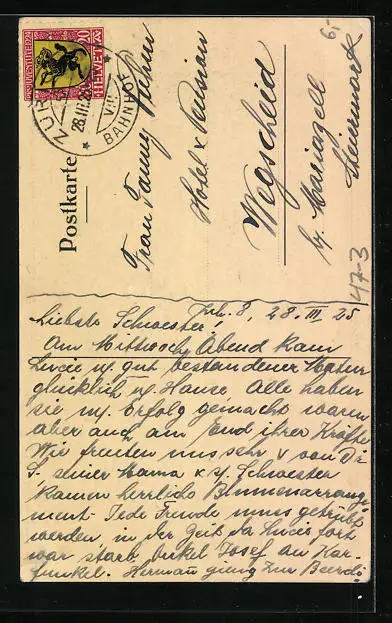 PRO JUVENTUTE 1924
20
HELVETIA
ZÜR
28.III.25
VIII
BAHNHOF
Postkarte
Frau Fanny
Hotel & Pension
Wegscheid
bz. Mariazell
Steiermark
6,-
47-3
Zrh. 8, 28. III 25
Liebste Schwester!
Am Mittwoch Abend kam
Lucie m. gut bestandener Matur
glücklich n. Hause. Alle haben
sie m. Erfolg gemacht waren
aber auch am End ihrer Kräfte
Wie freuten uns sehr & von Dr
S. seiner Mama & s. Schwester
kamen herrliche Blumenarrange
ment. Jede Freude muss getrübt
werden, in der Zeit da Lucie fort
war starb Onkel Josef am Kar-
funkel. Hermann ging zur Beerdi